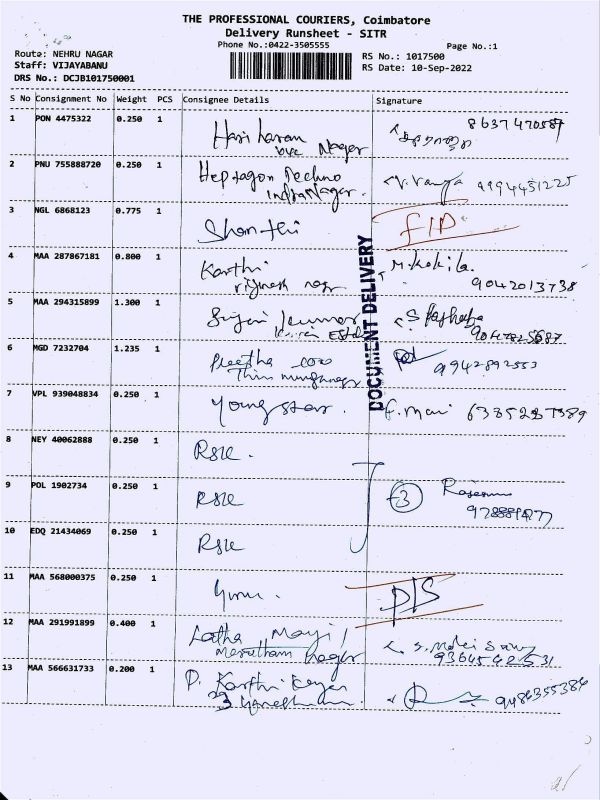 THE PROFESSIONAL COURIERS, Coimbatore
Delivery Runsheet - SITR
Phone No.:0422-3505555
Page No.:1
Route: NEHRU NAGAR
RS No.: 1017500
Staff: VIJAYABANU
RS Date: 10-Sep-2022
DRS No.: DCJB101750001
S No Consignment No Weight PCS Consignee Details Signature
1 PON 4475322 0.250 1 Hari haran 8637470587
Nagar
2 PNU 755888720 0.250 1 Heptagon Techno V. Vanya 9994451225
Indra Nagar.
3 NGL 6868123 0.775 1 Shanthi
4 MAA 287867181 0.800 1 Karthi M. Kokila.
nagar 9042013738
5 MAA 294315899 1.300 1 kumar S
6 MGD 7232704 1.235 1 Preetha 9942892553
7 VPL 939048834 0.250 1 Youngstar. F. Mari
DOCUMENT DELIVERY
8 NEY 40062888 0.250 1 RSK.
9 POL 1902734 0.250 1 RSK 3
10 EDQ 21434069 0.250 1 RSK
11 MAA 568000375 0.250 1 D/S
12 MAA 291991899 0.400 1 Latha
Marutham Nagar 9364542531
13 MAA 566631733 0.200 1 P. Karthikeyan
9486355384